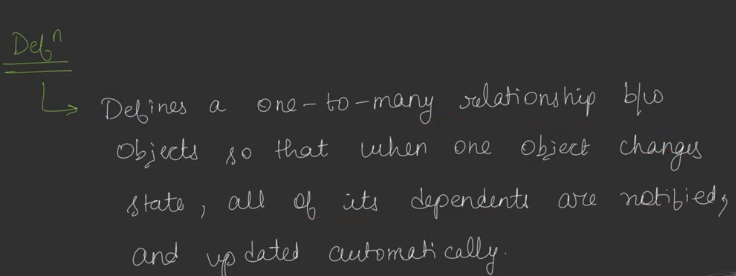 Defⁿ
Defines a one-to-many relationship b/w
objects so that when one object changes
state, all of its dependents are notified,
and updated automatically.